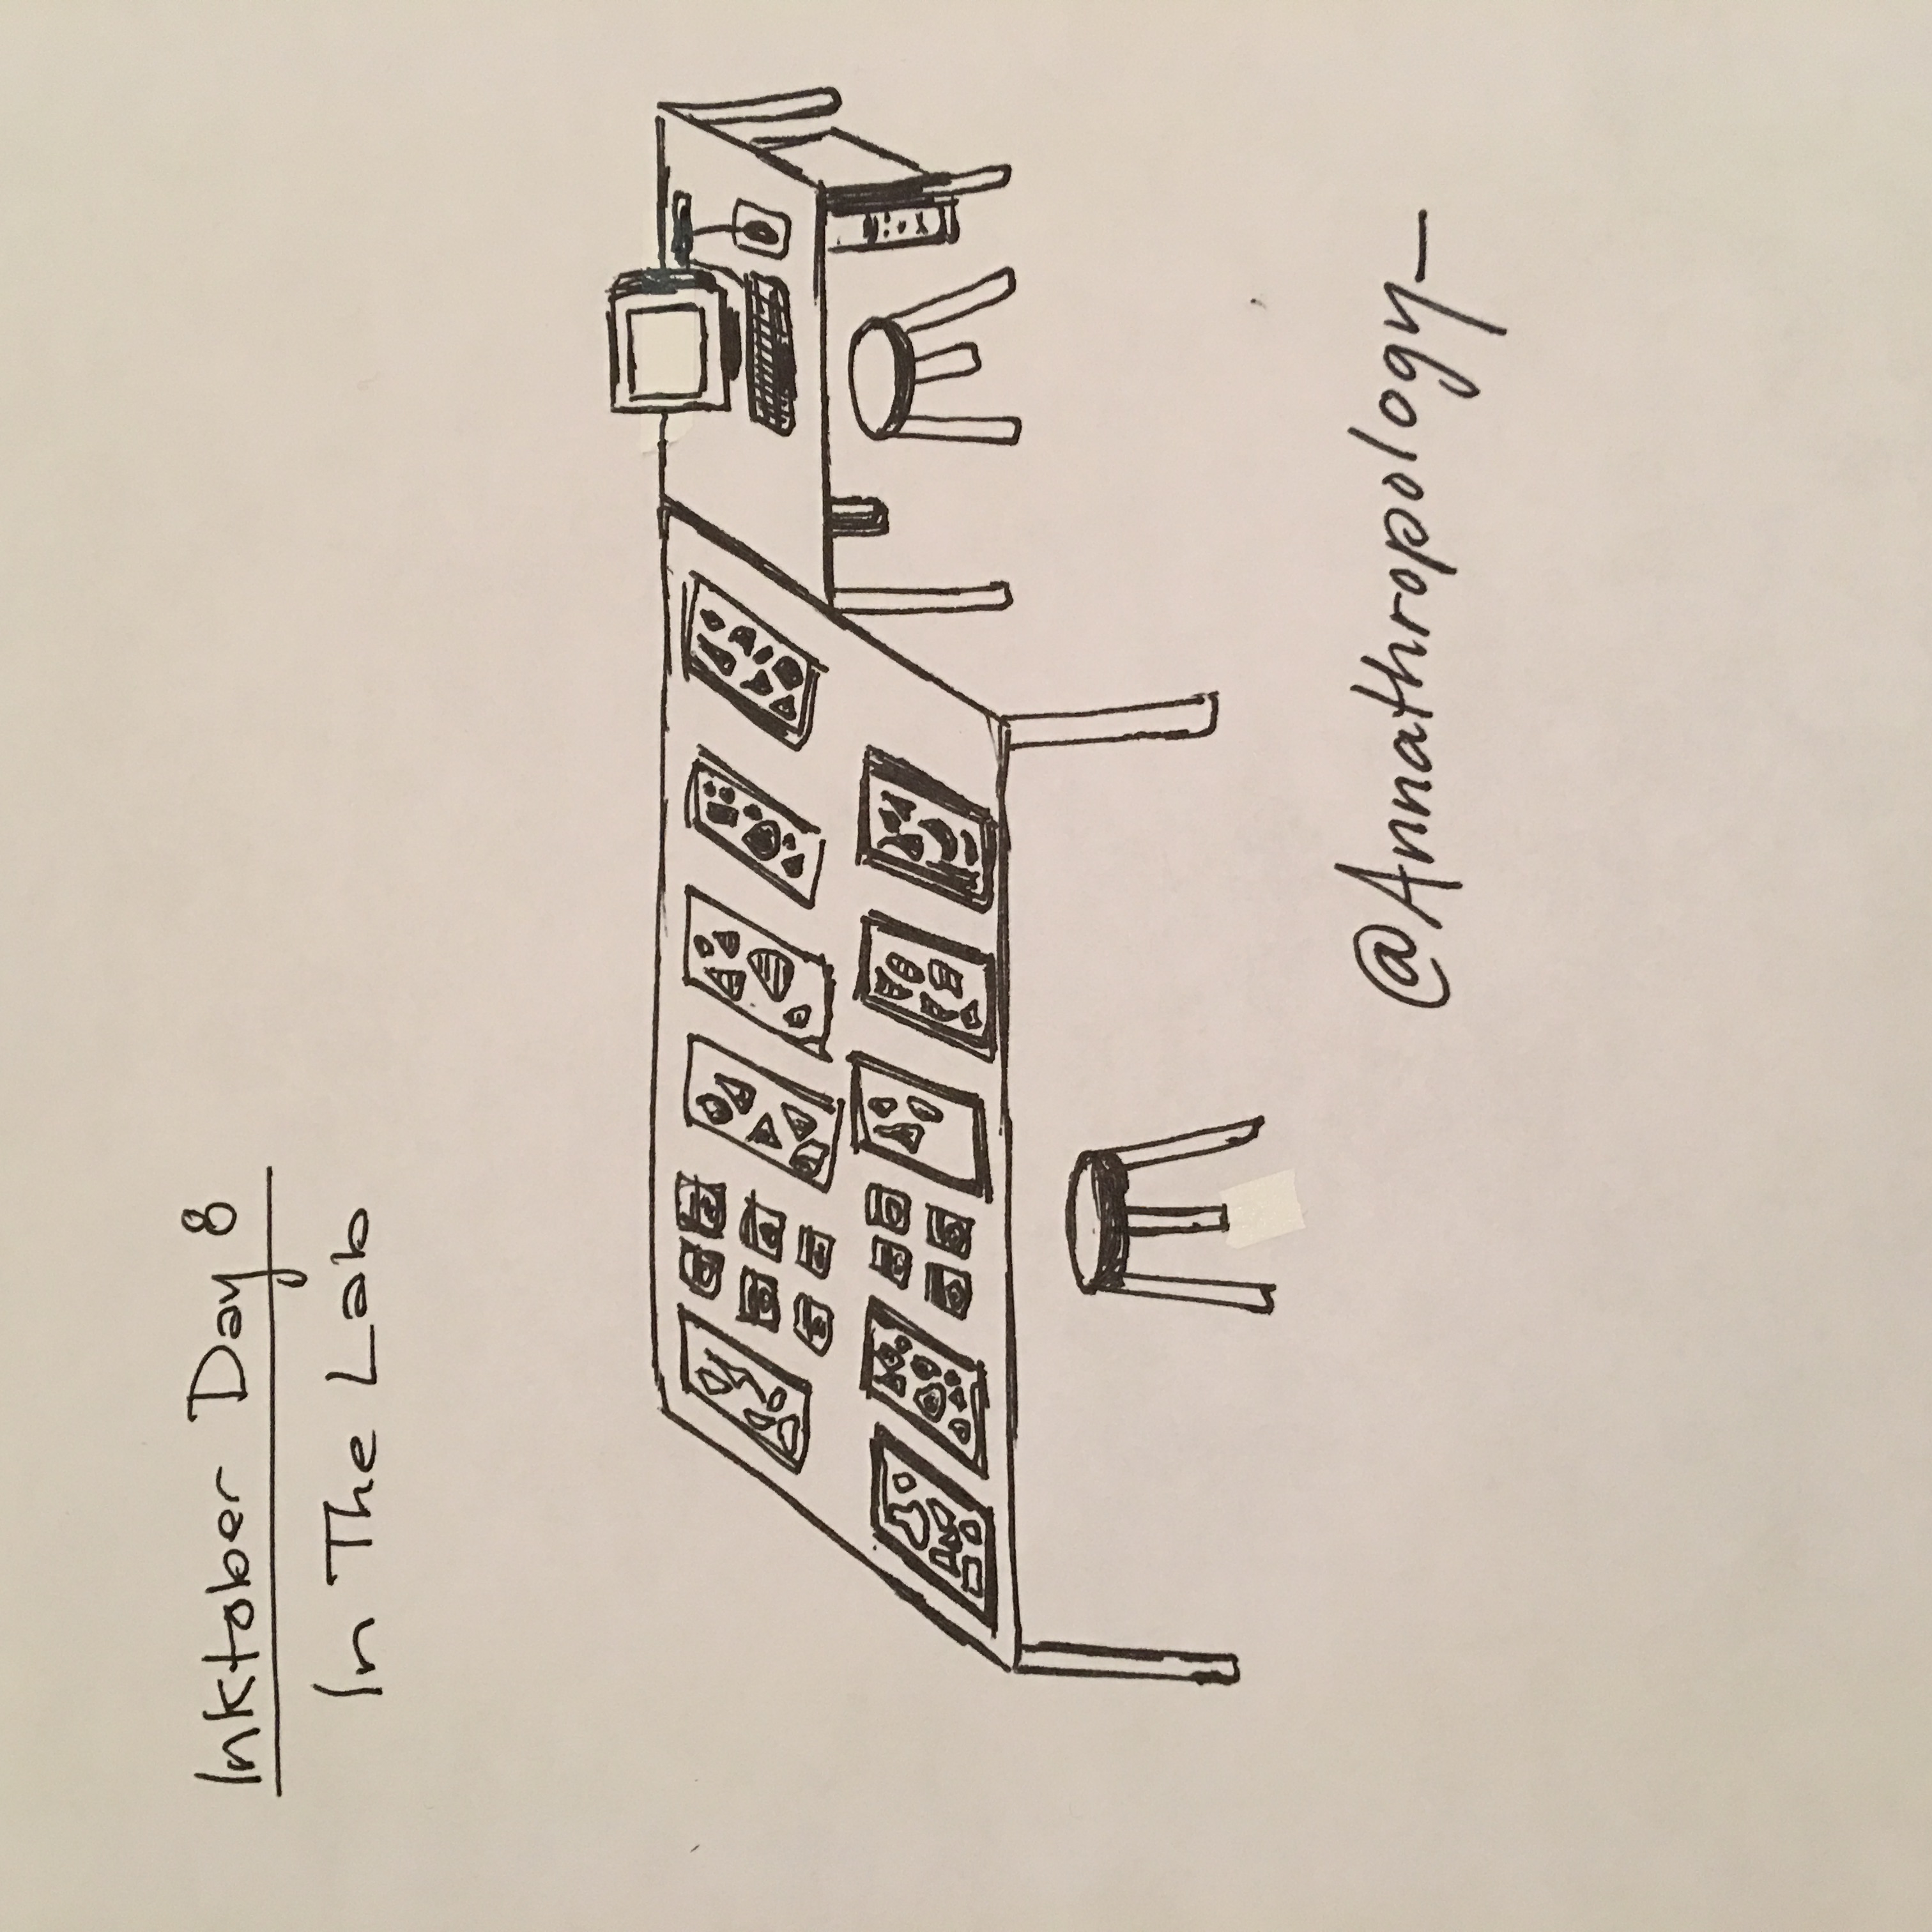 Inktober Day 8
In The Lab
@Annathropology_